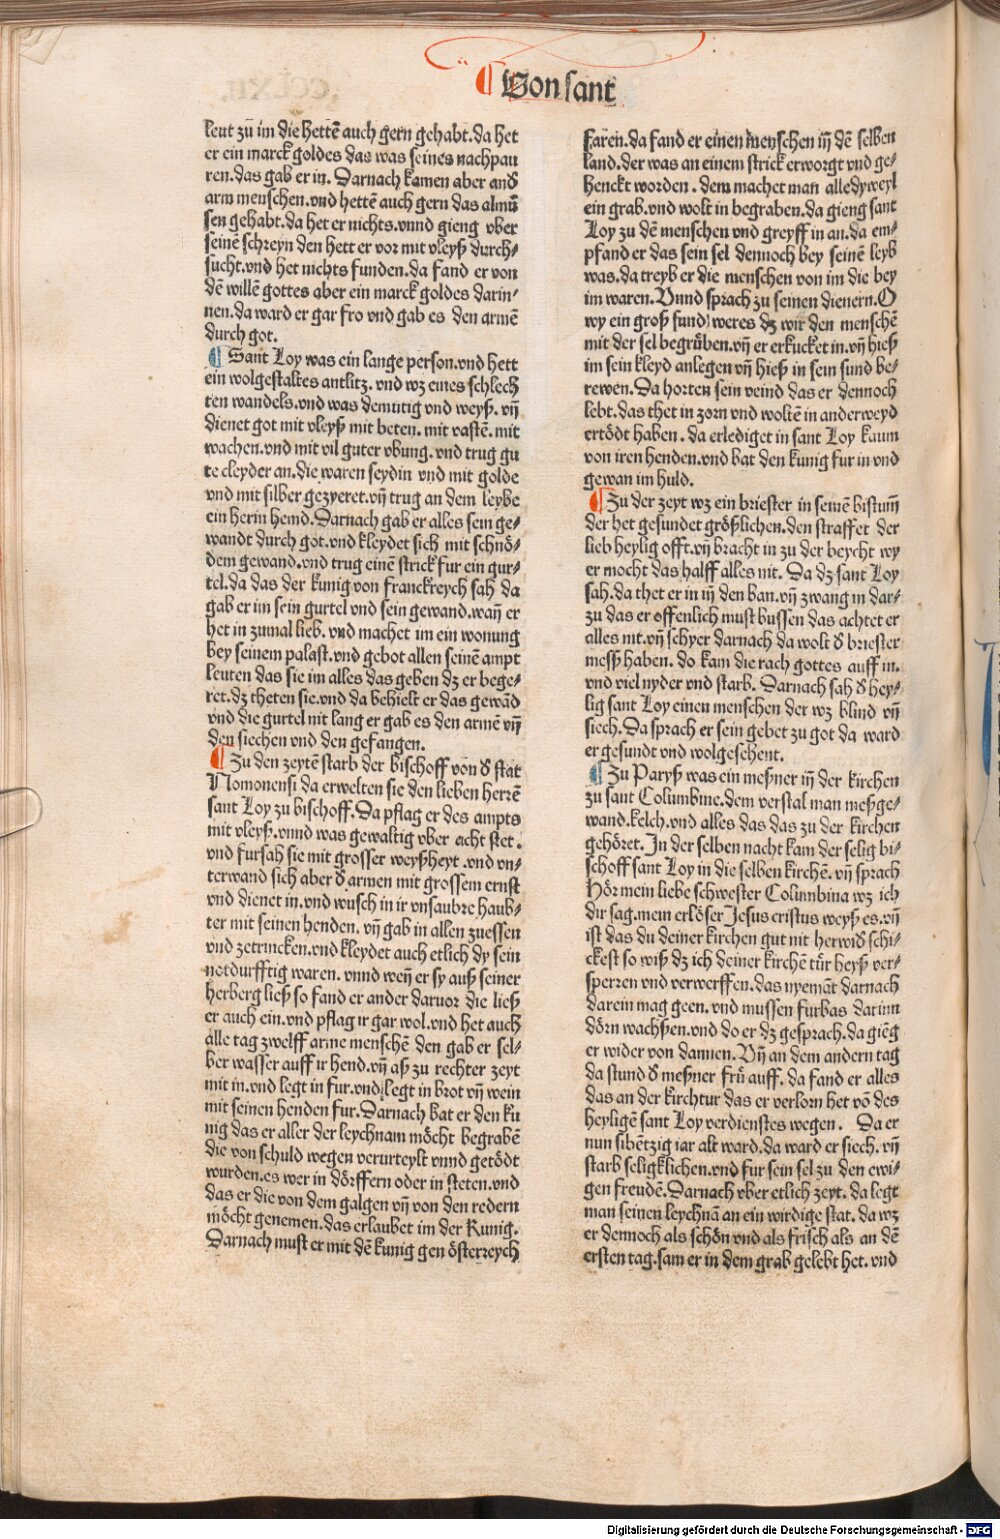 ¶ Von sant
leut zu im die hettē auch gern gehabt. da het
er ein marck goldes das was seines nachpau
ren. das gab er in. Darnach kamen aber and̄
arm menschen. vnd hettē auch gern das almů
sen gehabt. da het er nichts. vnnd gieng vber
seinē schreyn den hett er vor mit vleyß durch⸗
sucht. vnd het nichts funden. da fand er von
dē willē gottes aber ein marck goldes darin⸗
nen. da ward er gar fro vnd gab es den armē
durch got.
¶ Sant Loy was ein lange person. vnd hett
ein wolgestaltes antlitz. vnd wz eines schlech
ten wandels. vnd was demutig vnd weyß. vñ
dienet got mit vleyß mit beten. mit vastē. mit
wachen. vnd mit vil guter vbung. vnd trug gu
te cleyder an. die waren seydin vnd mit golde
vnd mit silber gezyeret. vñ trug an dem leybe
ein herin hemd. Darnach gab er alles sein ge⸗
wandt durch got. vnd kleydet sich mit schnö⸗
dem gewand. vnd trug einē strick fur ein gur⸗
tel. da das der kunig von franckreych sah da
gab er im sein gurtel vnd sein gewand. wañ er
het in zumal lieb. vnd machet im ein wonung
bey seinem palast. vnd gebot allen seinē ampt
leuten das sie im alles das geben dz er bege⸗
ret. dz theten sie. vnd da behielt er das gewād
vnd die gurtel nit lang er gab es den armē vñ
den siechen vnd den gefangen.
¶ Zu den zeytē starb der Bischoff von d̄ stat
Nomonensi da erwelten sie den lieben herrē
sant Loy zu bischoff. Da pflag er des ampts
mit vleyß. vnnd was gewaltig vber acht stet.
vnd fursah sie mit grosser weyßheyt. vnd vn⸗
terwand sich aber d̄ armen mit grossem ernst
vnd dienet in. vnd wusch in ir vnsaubre haub⸗
ter mit seinen henden. vñ gab in allen zuessen
vnd zetrincken. vnd kleydet auch etlich dy sein
notdurfftig waren. vnnd weñ er sy auß seiner
herberg ließ so fand er ander daruor die ließ
er auch ein. vnd pflag ir gar wol. vnd het auch
alle tag zwelff arme menschē den gab er sel⸗
ber wasser auff ir hend. vñ aß zu rechter zeyt
mit in. vnd legt in fur. vnd legt in brot vñ wein
mit seinen henden fur. Darnach bat er den ku
nig das er aller der leychnam möcht begrabē
die von schuld wegen verurteylt vnnd getödt
wurden. es wer in dörffern oder in steten. vnd
das er die von dem galgen vñ von den redern
möcht genemen. das erlaubet im der Kunig.
Darnach must er mit dē kunig gen österreych
faren. da fand er einen menschen iñ dē selben
land. der was an einem strick erworgt vnd ge⸗
henckt worden. dem machet man alledyweyl
ein grab. vnd wolt in begraben. da gieng sant
Loy zu dē menschen vnd greyff in an. da em⸗
pfand er das sein sel dennoch bey seinē leyb
was. da treyb er die menschen von im die bey
im waren. Vnnd sprach zu seinen dienern. O
wy ein groß sund weres dz wir den menschē
mit der sel begrüben. vñ er erkucket in. vñ hieß
im sein kleyd anlegen vñ hieß in sein sund be⸗
rewen. Da horten sein veind das er dennoch
lebt. das thet in zorn vnd woltē in anderweyd
ertödt haben. da erlediget in sant Loy kaum
von iren henden. vnd bat den kunig fur in vnd
gewan im huld.
¶ Zu der zeyt wz ein briester in seinē bistum̄
der het gesundet größlichen. den straffet der
lieb heylig offt. vñ bracht in zu der beycht wy
er mocht das halff alles nit. Da dz sant Loy
sah. da thet er in iñ den ban. vñ zwang in dar⸗
zu das er offenlich must bussen das achtet er
alles nit. vñ schyer darnach da wolt d̄ briester
meß haben. do kam die rach gottes auff in.
vnd viel nyder vnd starb. Darnach sah d̄ hey⸗
lig sant Loy einen menschen der wz blind vñ
siech. Da sprach er sein gebet zu got da ward
er gesundt vnd wolgesehent.
¶ Zu Paryß was ein meßner iñ der kirchen
zu sant Columbine. dem verstal man meßge⸗
wand. kelch. vnd alles das das zu der kirchen
gehöret. In der selben nacht kam der selig bi⸗
schoff sant Loy in die selben kirchē. vñ sprach
Hör mein liebe schwester Columbina wz ich
dir sag. mein erlöser Jesus cristus weyß es. vñ
ist das du deiner kirchen gut nit herwid̄ schi⸗
ckest so wiß dz ich deiner kirchē tür heyß ver⸗
sperren vnd verwerffen. das nyemāt darnach
darein mag geen. vnd mussen furbas darinn
dörn wachßen. vnd do er dz gesprach. da giēg
er wider von dannen. Vñ an dem andern tag
da stund d̄ meßner frü auff. da fand er alles
das an der kirchtur das er verlorn het vō des
heyligē sant Loy verdienstes wegen. Da er
nun sibētzig iar alt ward. da ward er siech. vñ
starb seligklichen. vnd fur sein sel zu den ewi⸗
gen freudē. Darnach vber etlich zeyt. da legt
man seinen leychnā an ein wirdige stat. da wz
er dennoch als schön vnd als frisch als an dē
ersten tag. sam er in dem grab gelebt het. vnd
Digitalisierung gefördert durch die Deutsche Forschungsgemeinschaft - DFG